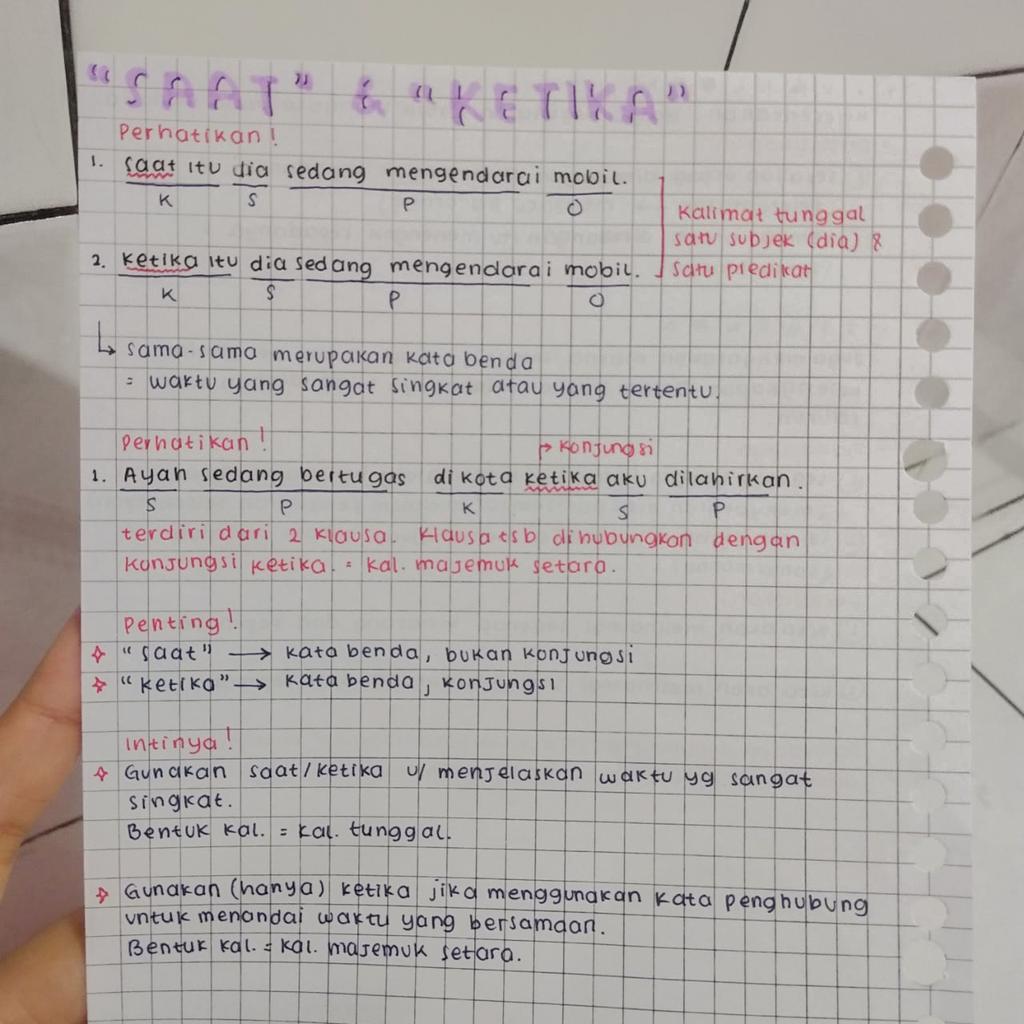 "SAAT" & "KETIKA"
Perhatikan!
1. saat itu dia sedang mengendarai mobil.
K S P O
Kalimat tunggal
satu subjek (dia) &
satu predikat
2. ketika itu dia sedang mengendarai mobil.
K S P O
↳ sama-sama merupakan kata benda
= waktu yang sangat singkat atau yang tertentu.
Perhatikan!
→ Konjungsi
1. Ayah sedang bertugas di kota ketika aku dilahirkan.
S P K S P
terdiri dari 2 klausa. Klausa tsb dihubungkan dengan
konjungsi ketika. = kal. majemuk setara.
Penting!
✧ "saat" → kata benda, bukan konjungsi
✧ "ketika" → kata benda, konjungsi
Intinya!
✧ Gunakan saat/ketika u/ menjelaskan waktu yg sangat
singkat.
Bentuk kal. = kal. tunggal.
✧ Gunakan (hanya) ketika jika menggunakan kata penghubung
untuk menandai waktu yang bersamaan.
Bentuk kal. = kal. majemuk setara.